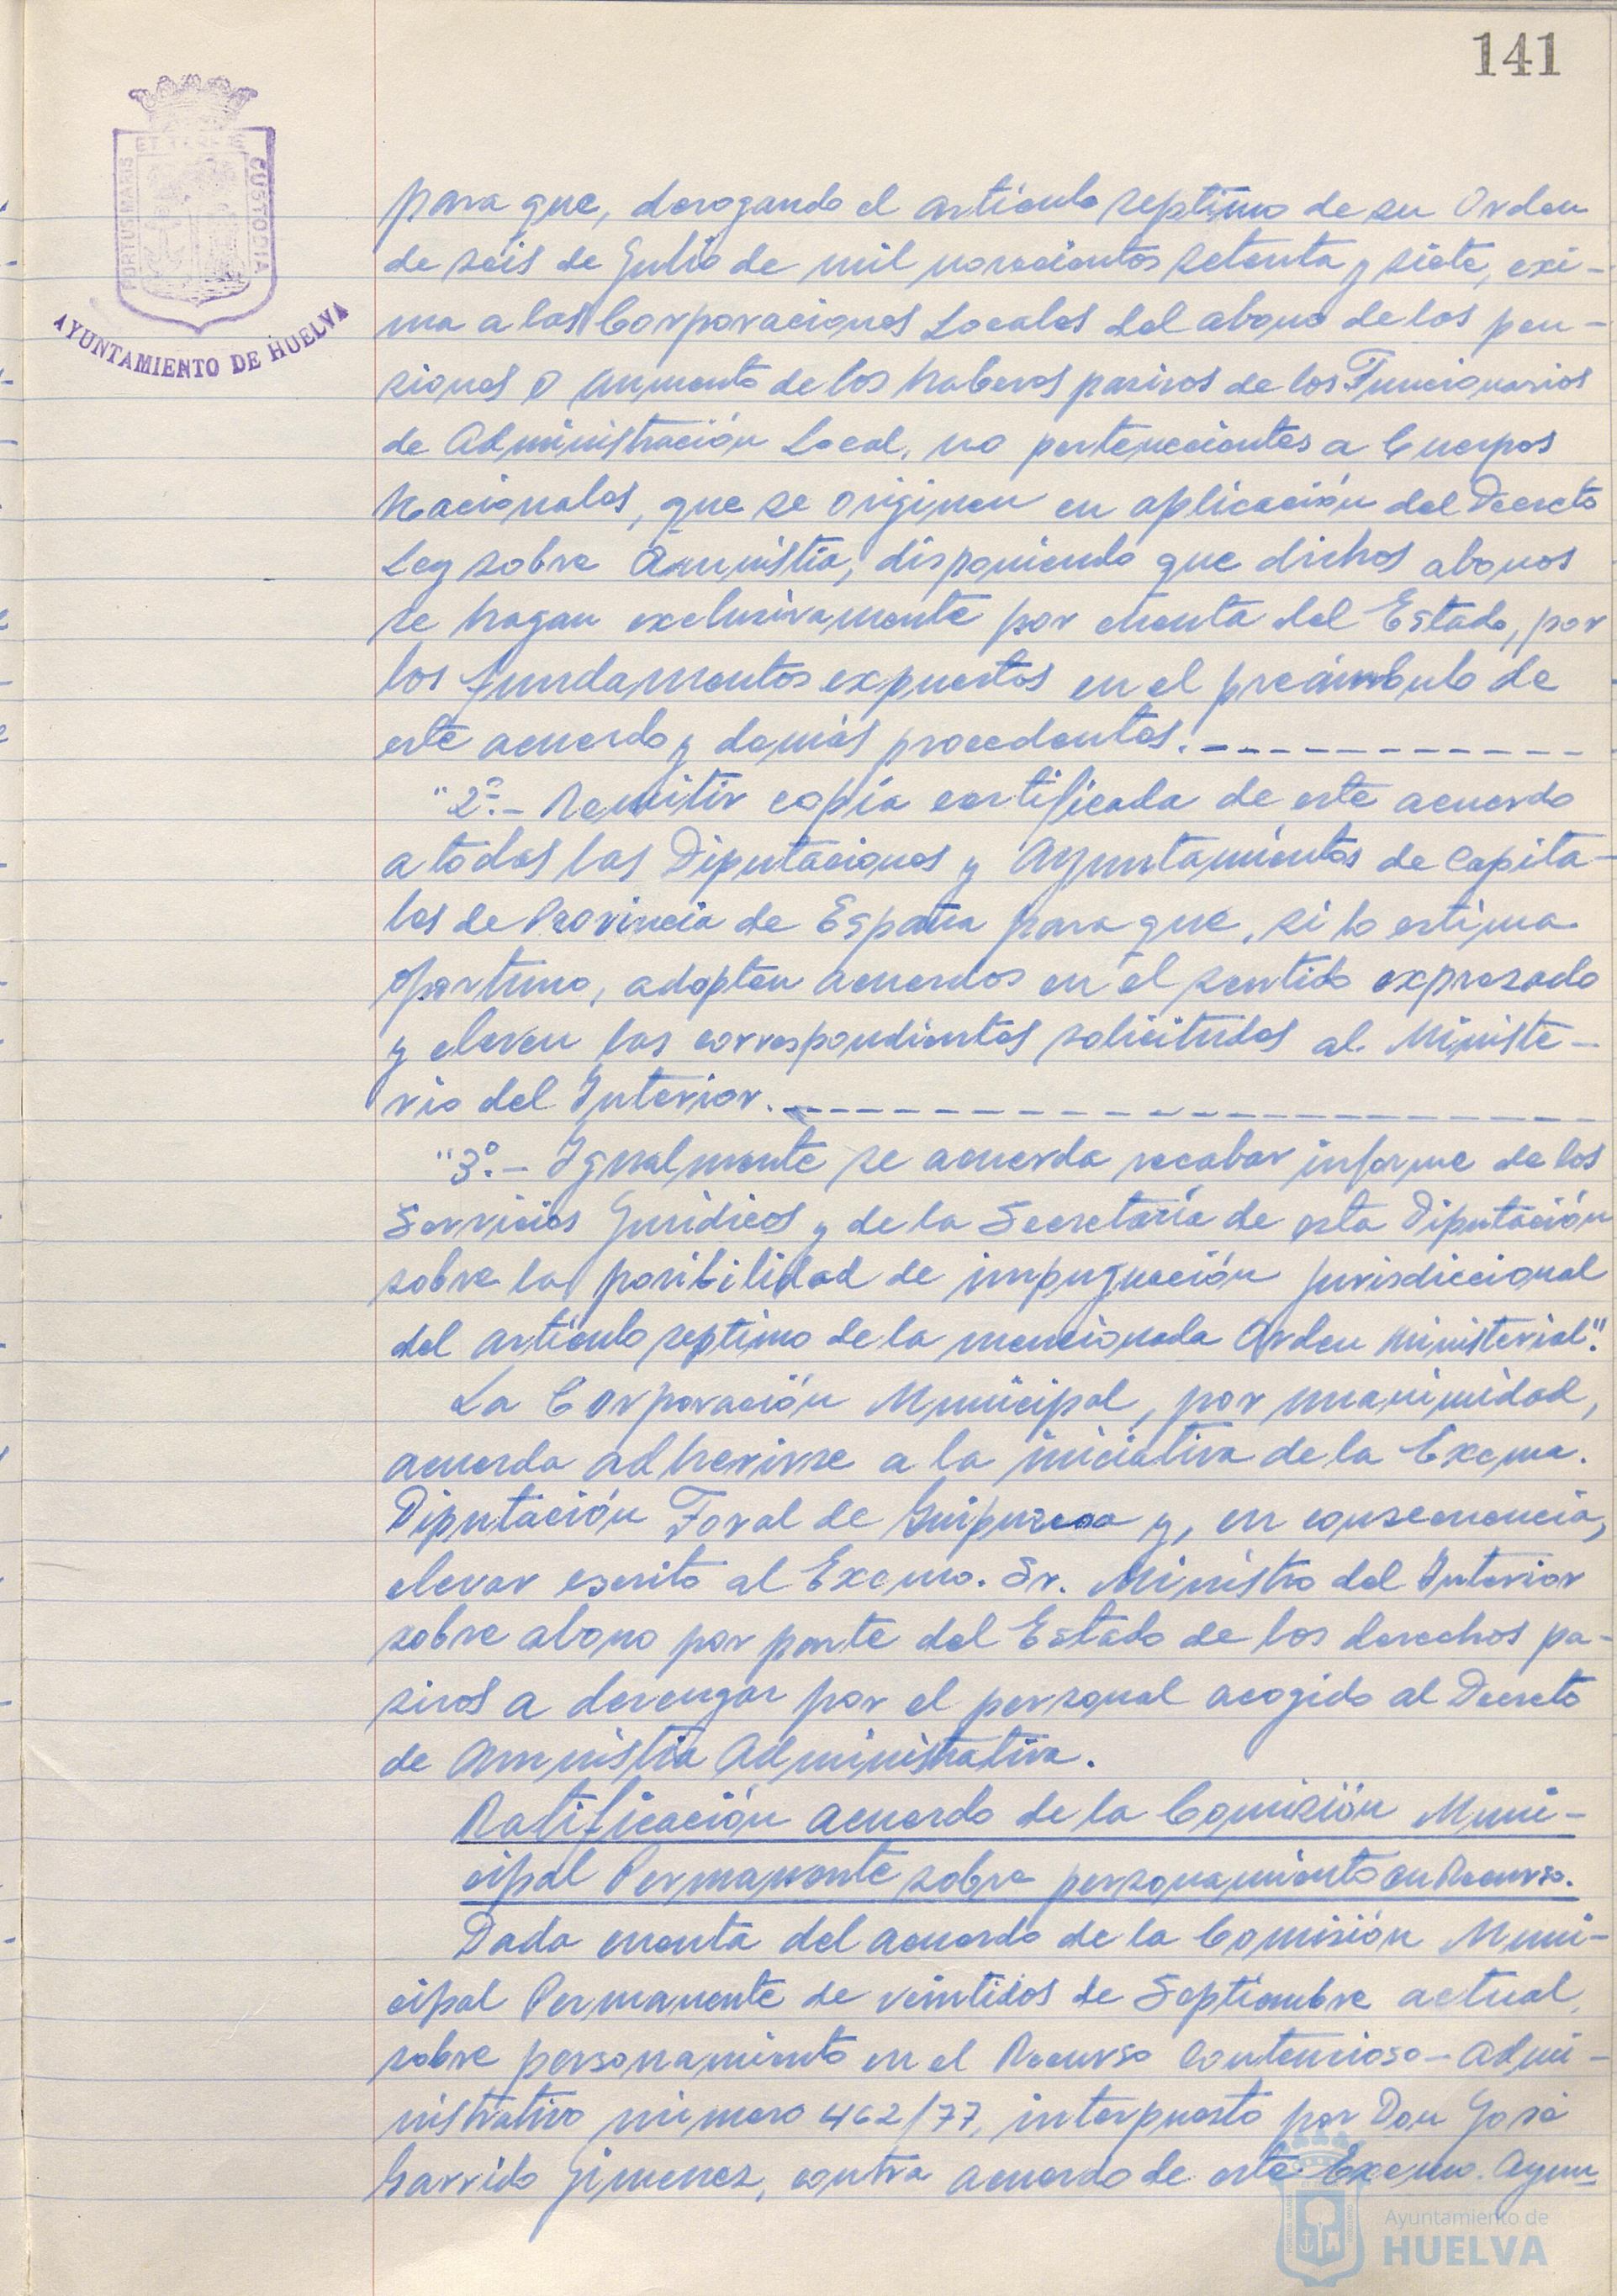 141
PORTUS MARIS
CUSTODIA
AYUNTAMIENTO DE HUELVA
para que, derogando el artículo septimo de su Orden
de seis de Julio de mil novecientos setenta y siete, exi-
ma a las Corporaciones Locales del abono de las pen-
siones o aumento de los haberes pasivos de los Funcionarios
de Administración Local, no pertenecientes a Cuerpos
Nacionales, que se originen en aplicación del Decreto
Ley sobre Amnistía, disponiendo que dichos abonos
se hagan exclusivamente por cuenta del Estado, por
los fundamentos expuestos en el preámbulo de
este acuerdo y demás procedentes.
"2º.- Remitir copia certificada de este acuerdo
a todas las Diputaciones y Ayuntamientos de Capita-
les de Provincia de España para que, si lo estima
oportuno, adopten acuerdos en el sentido expresado
y eleven las correspondientes solicitudes al Ministe-
rio del Interior.
"3º.- Igualmente se acuerda recabar informe de los
Servicios Jurídicos y de la Secretaría de esta Diputación
sobre la posibilidad de impugnación jurisdiccional
del artículo septimo de la mencionada Orden Ministerial".
La Corporación Municipal, por unanimidad,
acuerda adherirse a la iniciativa de la Excma.
Diputación Foral de Guipuzcoa y, en consecuencia,
elevar escrito al Excmo. Sr. Ministro del Interior
sobre abono por parte del Estado de los derechos pa-
sivos a devengar por el personal acogido al Decreto
de Amnistía Administrativa.
Ratificación acuerdo de la Comisión Muni-
cipal Permanente sobre personamiento en Recurso.
Dada cuenta del acuerdo de la Comisión Muni-
cipal Permanente de veintidos de Septiembre actual,
sobre personamiento en el Recurso Contencioso-Admi-
nistrativo número 462/77, interpuesto por Don José
Garrido Jimenez, contra acuerdo de este Excmo. Ayun-
Ayuntamiento de
HUELVA